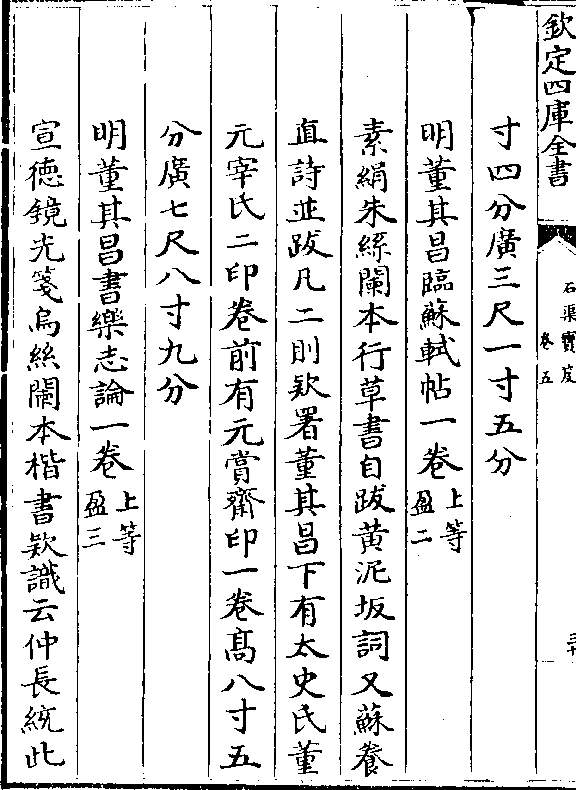 欽定四庫全書
石渠寶笈
卷五
三十
寸四分廣三尺一寸五分
明董其昌臨蘇軾帖一卷上等盈二
素絹朱絲闌本行草書自跋黄泥坂詞又蘇養
直詩並跋凡二則欵署董其昌下有太史氏董
元宰氏二印卷前有元賞齋印一卷髙八寸五
分廣七尺八寸九分
明董其昌書樂志論一卷上等盈三
宣徳鏡光箋烏絲闌本楷書欵識云仲長統此